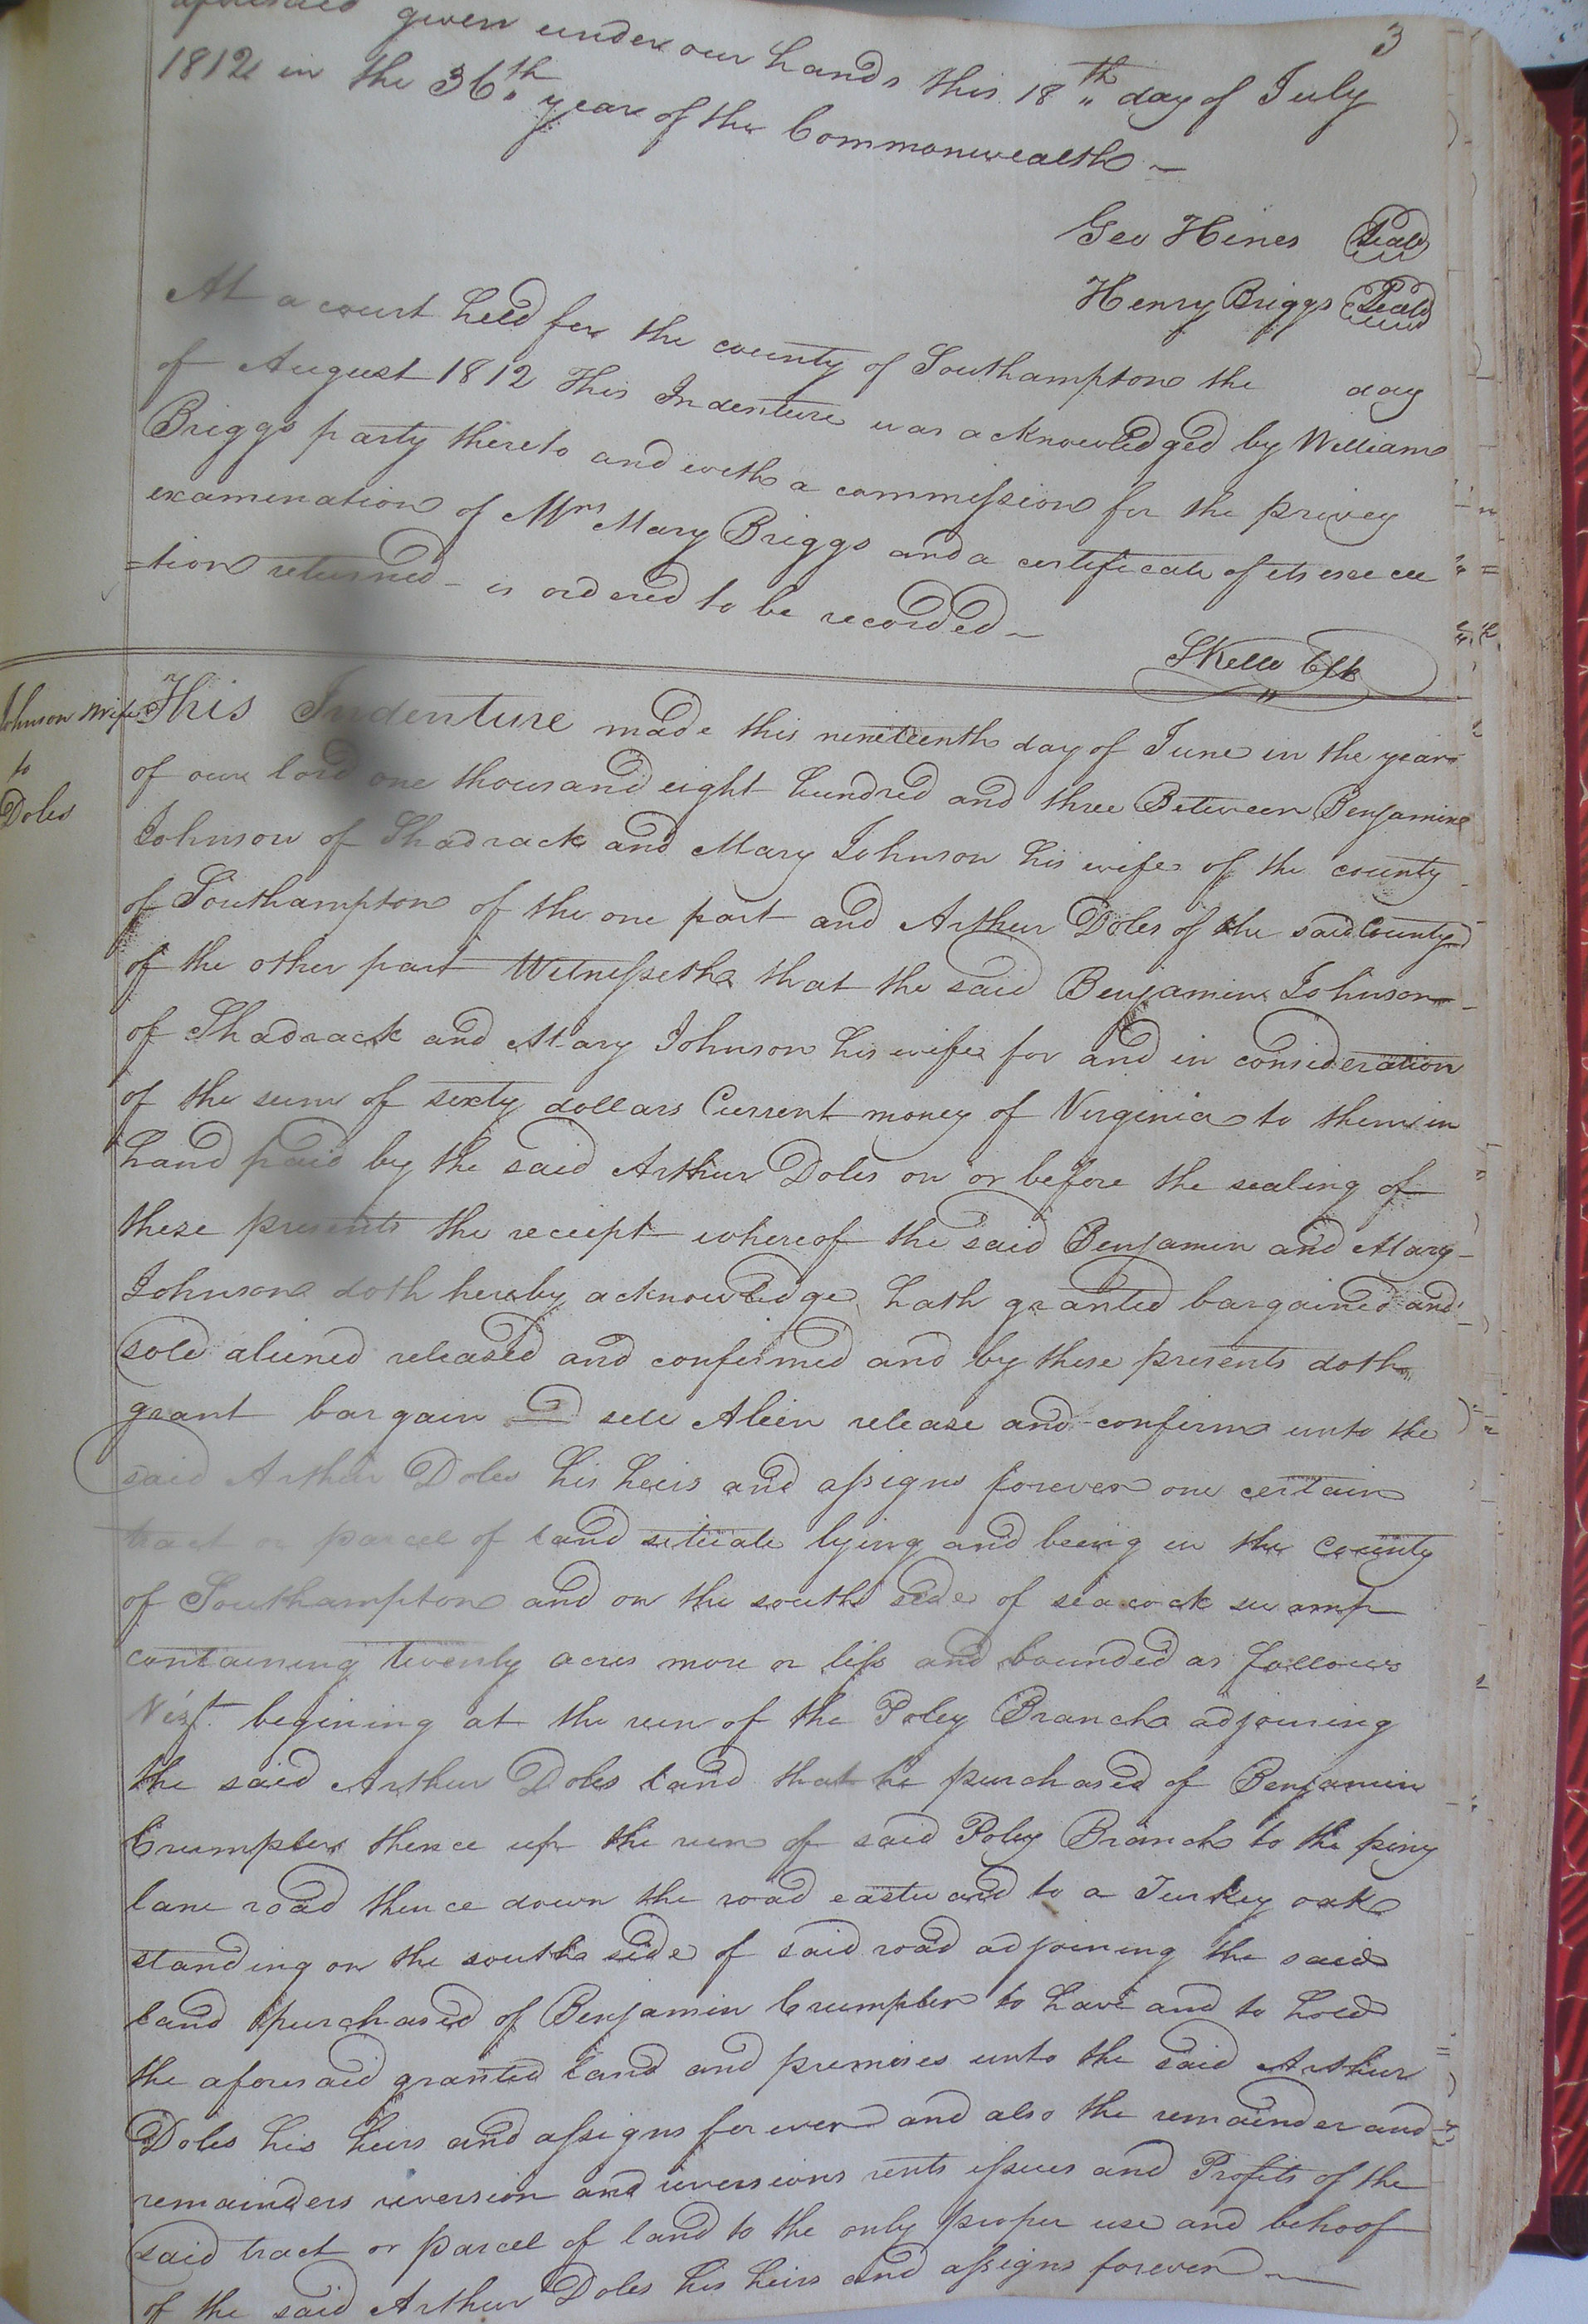 3
aforesaid given under our hands this 18th day of July
1812 in the 36th year of the Commonwealth —
Geo Hines Seal
Henry Briggs Seal
At a court held for the county of Southampton the day
of August 1812 This Indenture was acknowledged by William
Briggs party thereto and with a commission for the privey
examination of Mrs Mary Briggs and a certificate of its execu
=tion returned - is ordered to be recorded —
SKello Clk
Johnson & wife
to
Doles
This Indenture made this nineteenth day of June in the year
of our lord one thousand eight hundred and three Between Benjamin
Johnson of Shadrack and Mary Johnson his wife of the county
of Southampton of the one part and Arthur Doles of the said County
of the other part Witnesseth that the said Benjamin Johnson
of Shadrack and Mary Johnson his wife for and in consideration
of the sum of sixty dollars Current money of Virginia to them in
hand paid by the said Arthur Doles on or before the sealing of
these presents the receipt whereof the said Benjamin and Mary
Johnson doth hereby acknowledge hath granted bargained and
sold aliened released and confirmed and by these presents doth
grant bargain and sell Alein release and confirm unto the
said Arthur Doles his heirs and assigns forever one certain
tract or parcel of land situate lying and being in the County
of Southampton and on the south side of seacock swamp
containing twenty acres more or less and bounded as follows
Vizt. begining at the run of the Poley Branch adjoining
the said Arthur Doles land that he purchased of Benjamin
Crumpler thence up the run of said Poley Branch to the piny
lane road thence down the road eastward to a Turkey oak
standing on the south side of said road adjoining the said
land purchased of Benjamin Crumpler to have and to hold
the aforesaid granted land and premises unto the said Arthur
Doles his heirs and assigns forever and also the remainder and
remainders reversion and reversions rents issues and Profits of the
said tract or parcel of land to the only proper use and behoof
of the said Arthur Doles his heirs and assigns forever —